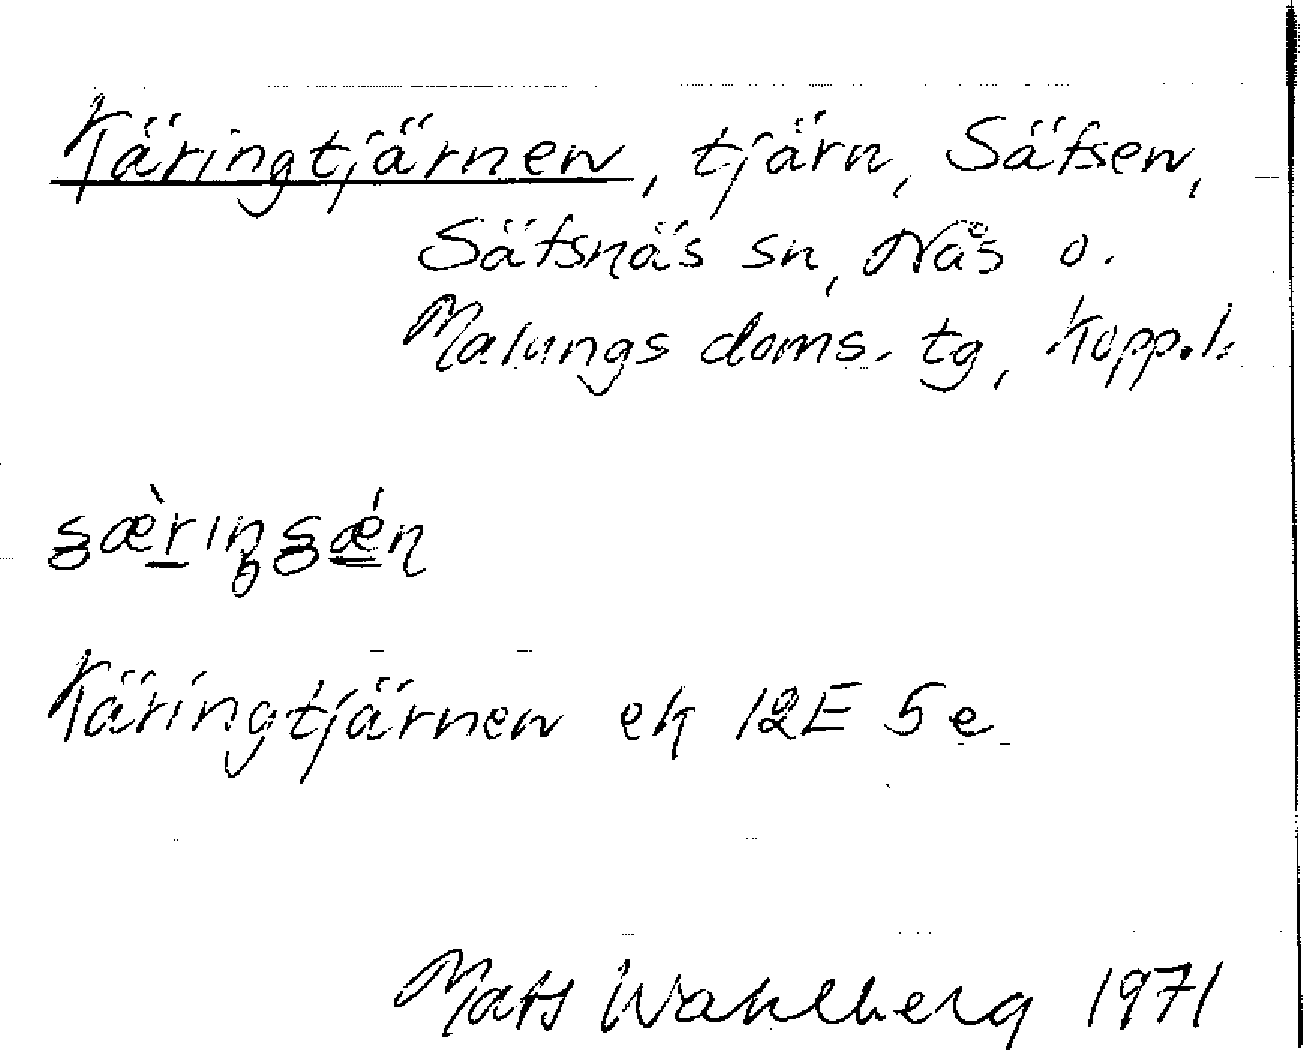 Käringtjärnen, tjärn, Säfsen,
Säfsnäs sn, Nås o.
Malungs doms. tg, Kopp.l.
Käringtjärnen ek 12E 5e
Mats Wahlberg 1971